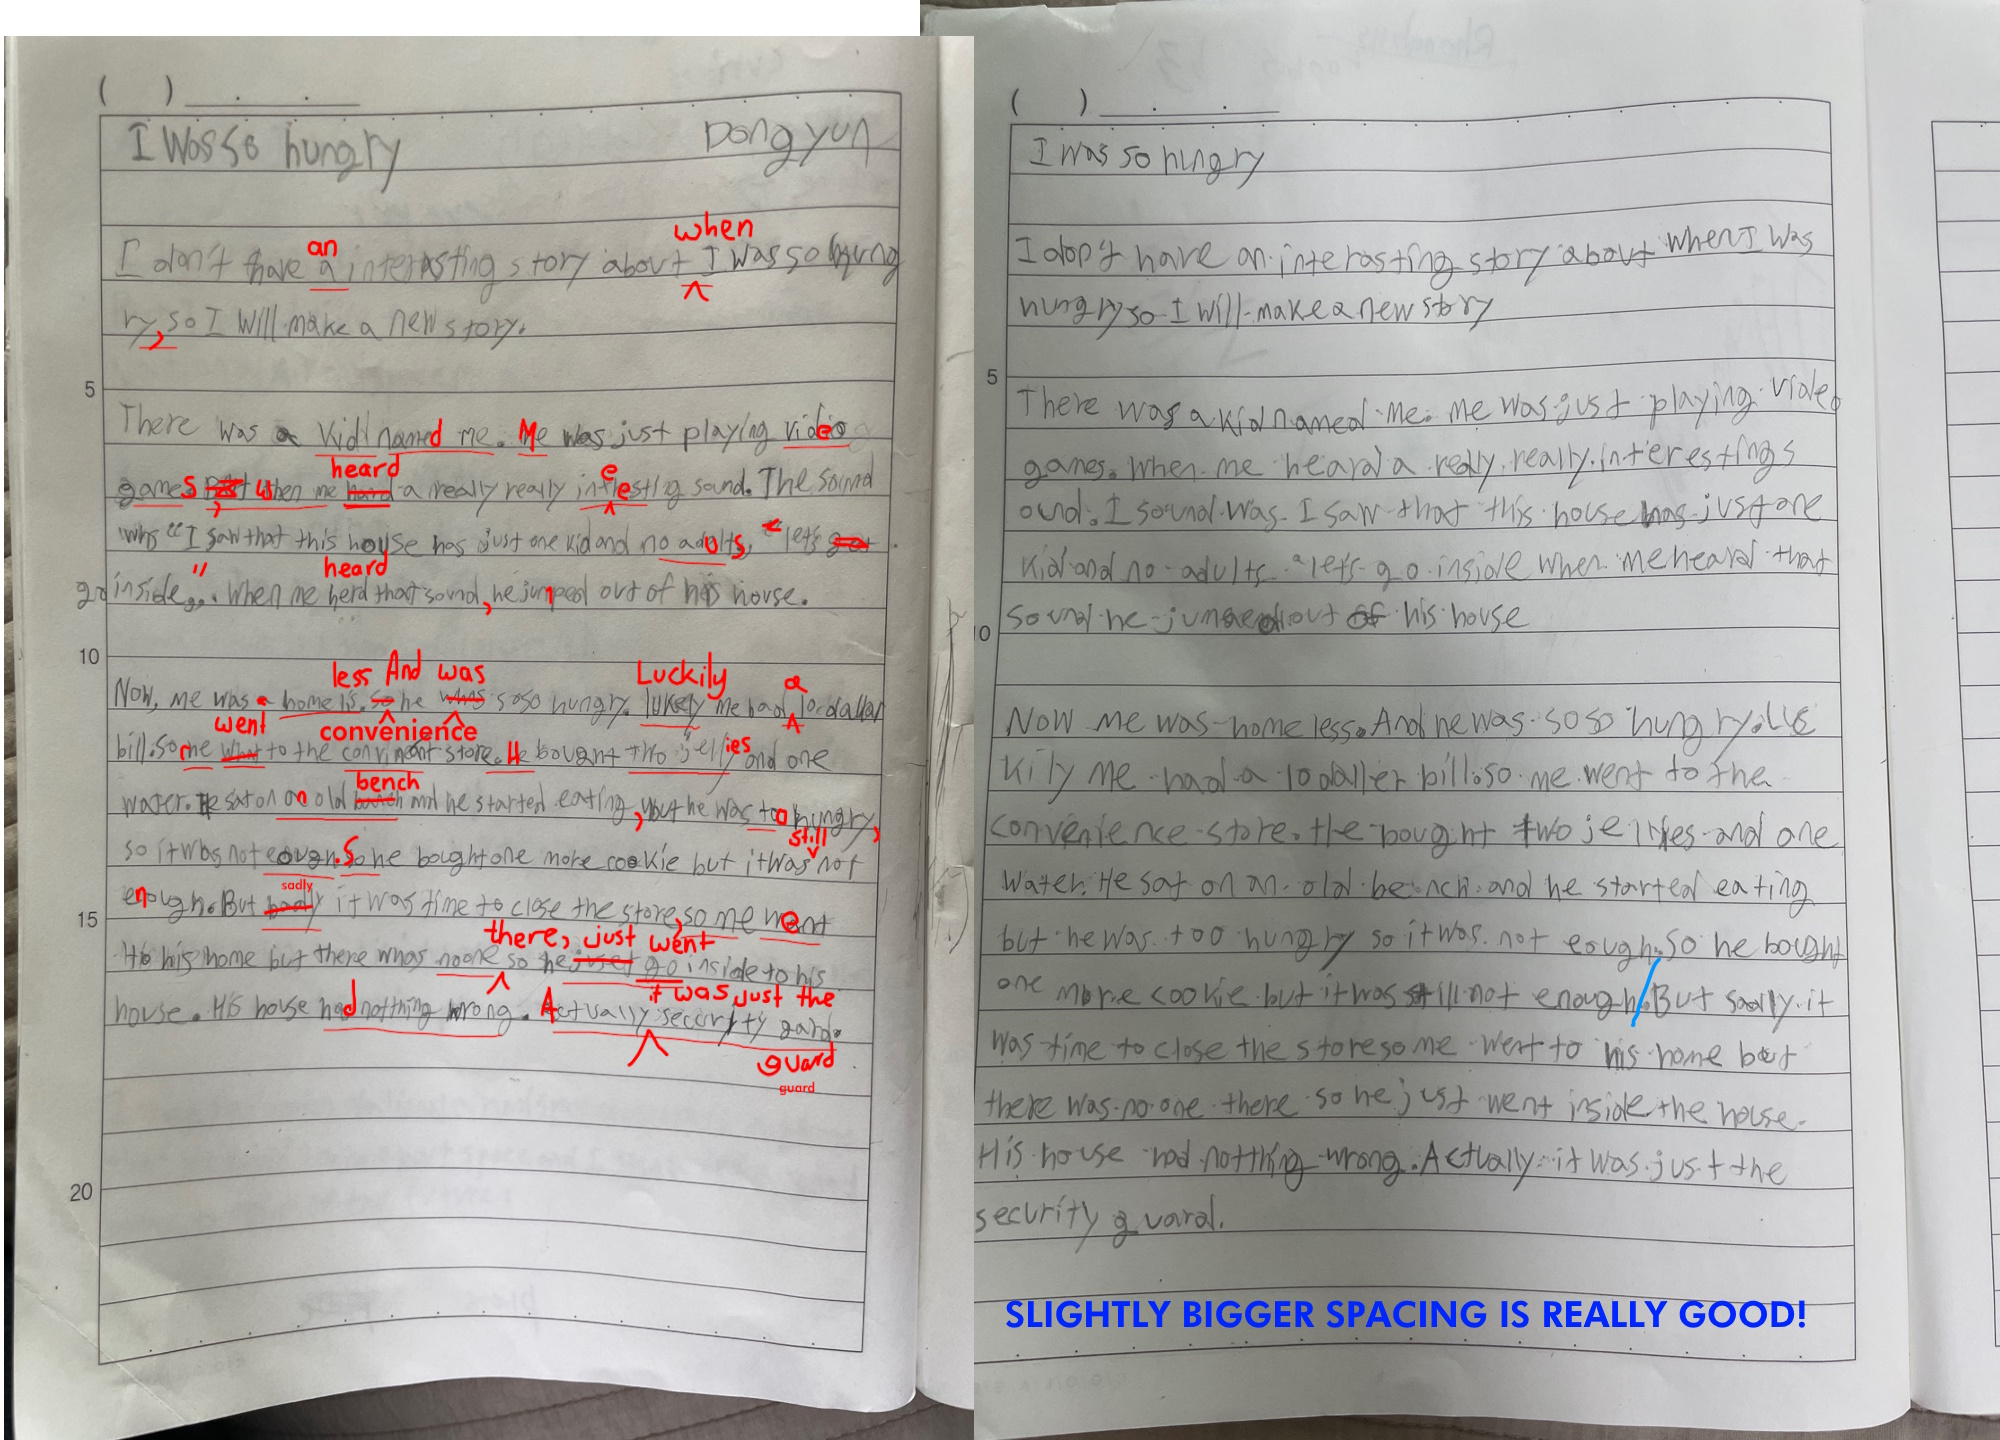 ( ) . .
I Was so hungry Dong yun
an when
I don't have a interasting story about I was so hung
ry, so I Will make a new story.
5
There was a kid named me. Me was just playing video
heard e
games When me hard a really really intresting sound. The sound
whs "I saw that this house has just one kid and no adults, "let's
heard
go inside". When me herd that sound, he jumped out of his house.
10
less And was Luckily a
Now, me was a home is. so he whas so so hungry. lukely me had 10 dallar
went convenience
bill. so me what to the convinient store. He bought two jellies and one
bench
water. He sat on an old and he started eating, but he was too hungry,
still
so it was not eough. So he bought one more cookie but it was not
sadly
enough. But badly it was time to close the store, so me went
15
there, just went
to his home but there whas no one so he go inside to his
it was just the
house. His house had notthing wrong. Actually security gard.
guard
guard
20
( ) . .
I was so hungry
I don't have an interasting story about when I was
hungry so I will make a new story
5
There was a kid named me. me was just playing video
games. When me heard a really really interesting s
ound. I sound was I saw that this house has just one
kid and no adults "let's go inside when me heard that
sound he out of his house
10
Now me was home less. And he was so so hungry. Luc
kily me had a 10 daller bill. so me went to the
convenience store. the bought two jellies and one
water. He sat on an old bench and he started eating
but he was too hungry so it was not eough. so he bought
one more cookie but it was still not enough. But sadly it
was time to close the store so me went to his home but
there was no one there so he just went inside the house.
His house had notthing wrong. Actually it was just the
security guard.
SLIGHTLY BIGGER SPACING IS REALLY GOOD!